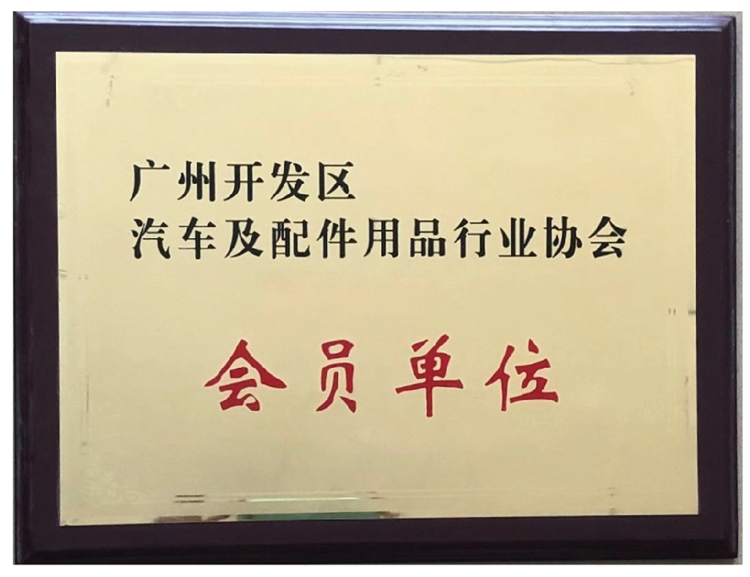 广州开发区
汽车及配件用品行业协会
会员单位